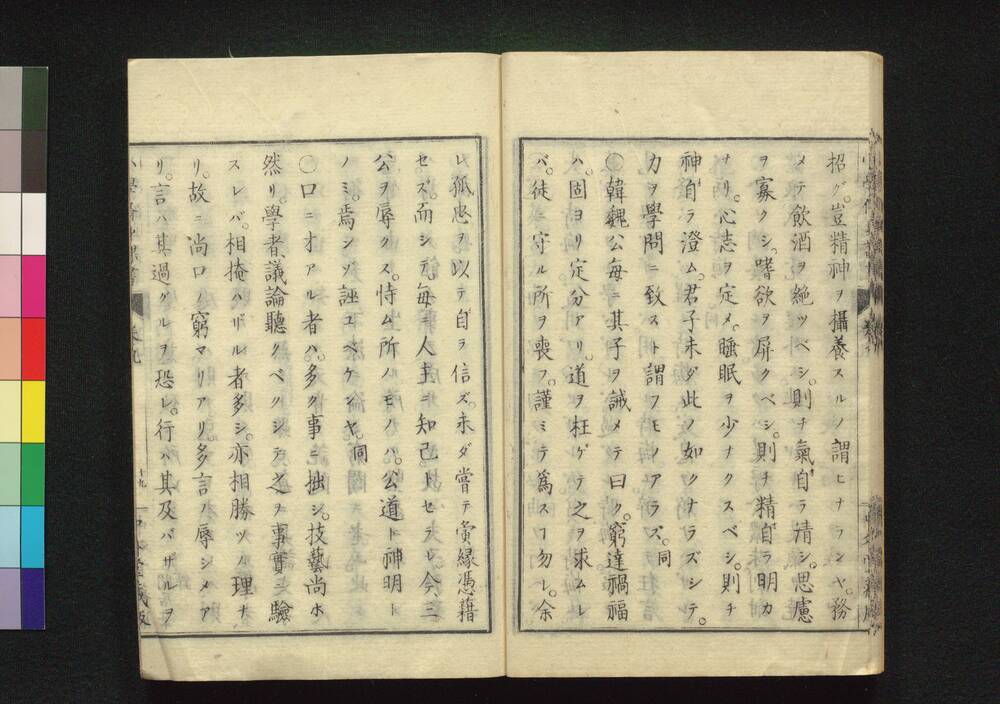 招グ。豈精神ヲ攝養スルノ謂ヒナランヤ。務
メテ飮酒ヲ絶ツベシ。則チ氣自ラ清シ。思慮
ヲ寡クシ。嗜欲ヲ屏クベシ。則チ精自ラ明カ
ナリ。心志ヲ定メ。睡眠ヲ少ナクスベシ。則チ
神自ラ澄ム。君子未ダ此ノ如クナラズシテ。
力ヲ學問ニ致スト謂フモノアラズ。同
〇韓魏公毎ニ其子ヲ誡メテ曰ク。窮達禍福
ハ。固ヨリ定分アリ。道ヲ枉ゲテ之ヲ求ムレ
バ。徒守ル所ヲ喪フ。謹ミテ爲スヿ勿レ。余
レ孤忠ヲ以テ自ラ信ズ。未ダ嘗テ夤縁憑藉
セズ。而シテ毎ニ人主ニ知己トセラレ。今三
公ヲ辱クス。恃ム所ノモノハ。公道ト神明ト
ノミ。焉ンゾ誣ユベケンヤ。同
〇口ニ才アル者ハ。多ク事ニ拙シ。技藝尚ホ
然リ。學者議論聽クベクシテ之ヲ事實ニ驗
スレバ。相掩ハザル者多シ。亦相勝ツノ理ナ
リ。故ニ尚口ノ窮マリアリ。多言ノ辱シメア
リ。言ハ其過グルヲ恐レ。行ハ其及バザルヲ
卷九
十九